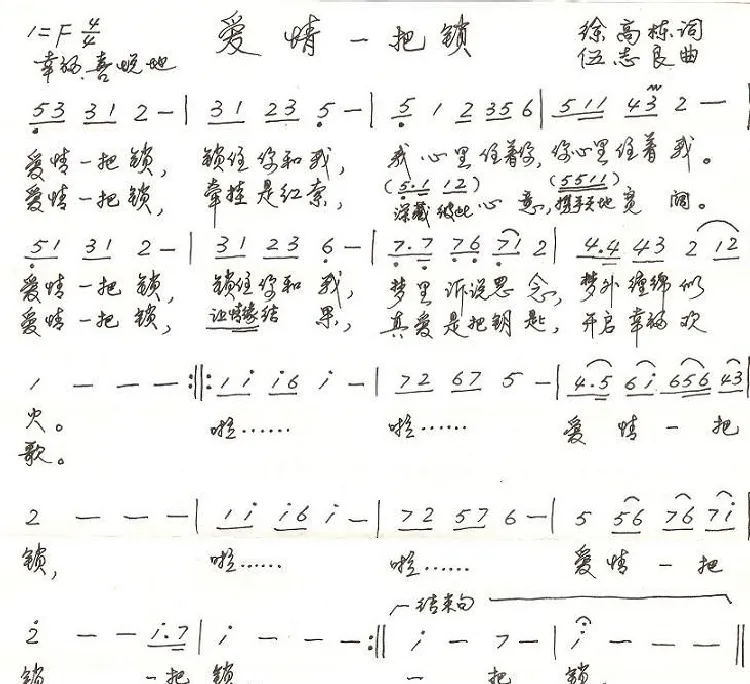 1=F 4/4 爱情一把锁 徐高栋词
幸福、喜悦地 伍志良曲
53 31 2 – | 31 23 5 – | 5 1 2 356 | 511 43 2 – |
爱情一把锁, 锁住你和我, 我心里住着你, 你心里住着我。
(5·1 12) (5511)
爱情一把锁, 牵挂是红索, 深藏彼此心意, 携手天地宽阔。
51 31 2 – | 31 23 6 – | 7·7 76 71 2 | 4·4 43 2 12
爱情一把锁, 锁住你和我, 梦里诉说思念, 梦外缠绵似
爱情一把锁, 让情缘结果, 真爱是把钥匙, 开启幸福欢
1 – – – :||: 1i i6 i – | 72 67 5 – | 4·5 6i 656 43 |
火。 啦…… 啦…… 爱情一把
歌。
2 – – – | 1i i6 i – | 72 57 6 – | 5 56 76 7i |
锁, 啦…… 啦…… 爱情一把
结束句
2 – – i·7 | i – – – :|| i – 7 – | i – – – ||
锁 一把锁. 一 把 锁.